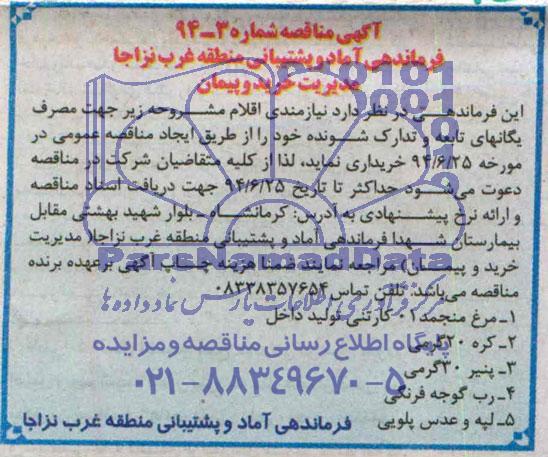 آگهی مناقصه شماره ۳-۹۴
فرماندهی آماد و پشتیبانی منطقه غرب نزاجا
مدیریت خرید و پیمان
این فرماندهی در نظر دارد نیازمندی اقلام مشروحه زیر جهت مصرف
یگانهای تابعه و تدارک شونده خود را از طریق ایجاد مناقصه عمومی در
مورخه ۹۴/۶/۲۵ خریداری نماید، لذا از کلیه متقاضیان شرکت در مناقصه
دعوت می‌شود حداکثر تا تاریخ ۹۴/۶/۲۵ جهت دریافت اسناد مناقصه
و ارائه نرخ پیشنهادی به آدرس: کرمانشاه - بلوار شهید بهشتی مقابل
بیمارستان شهدا فرماندهی آماد و پشتیبانی منطقه غرب نزاجا( مدیریت
خرید و پیمان) مراجعه نمایند ضمنا هزینه چاپ آگهی برعهده برنده
مناقصه می‌باشد. تلفن تماس ۰۸۳۳۸۳۵۷۶۵۴
۱- مرغ منجمد ۰۱ کارتنی تولید داخل
۲- کره ۲۰گرمی
۳- پنیر ۳۰گرمی
۴- رب گوجه فرنگی
۵- لپه و عدس پلویی
فرماندهی آماد و پشتیبانی منطقه غرب نزاجا
ParsNamadData
فرآوری اطلاعات پارس نماد داده‌ها
پایگاه اطلاع رسانی مناقصه و مزایده
۰۲۱-۸۸۳۴۹۶۷۰-۵